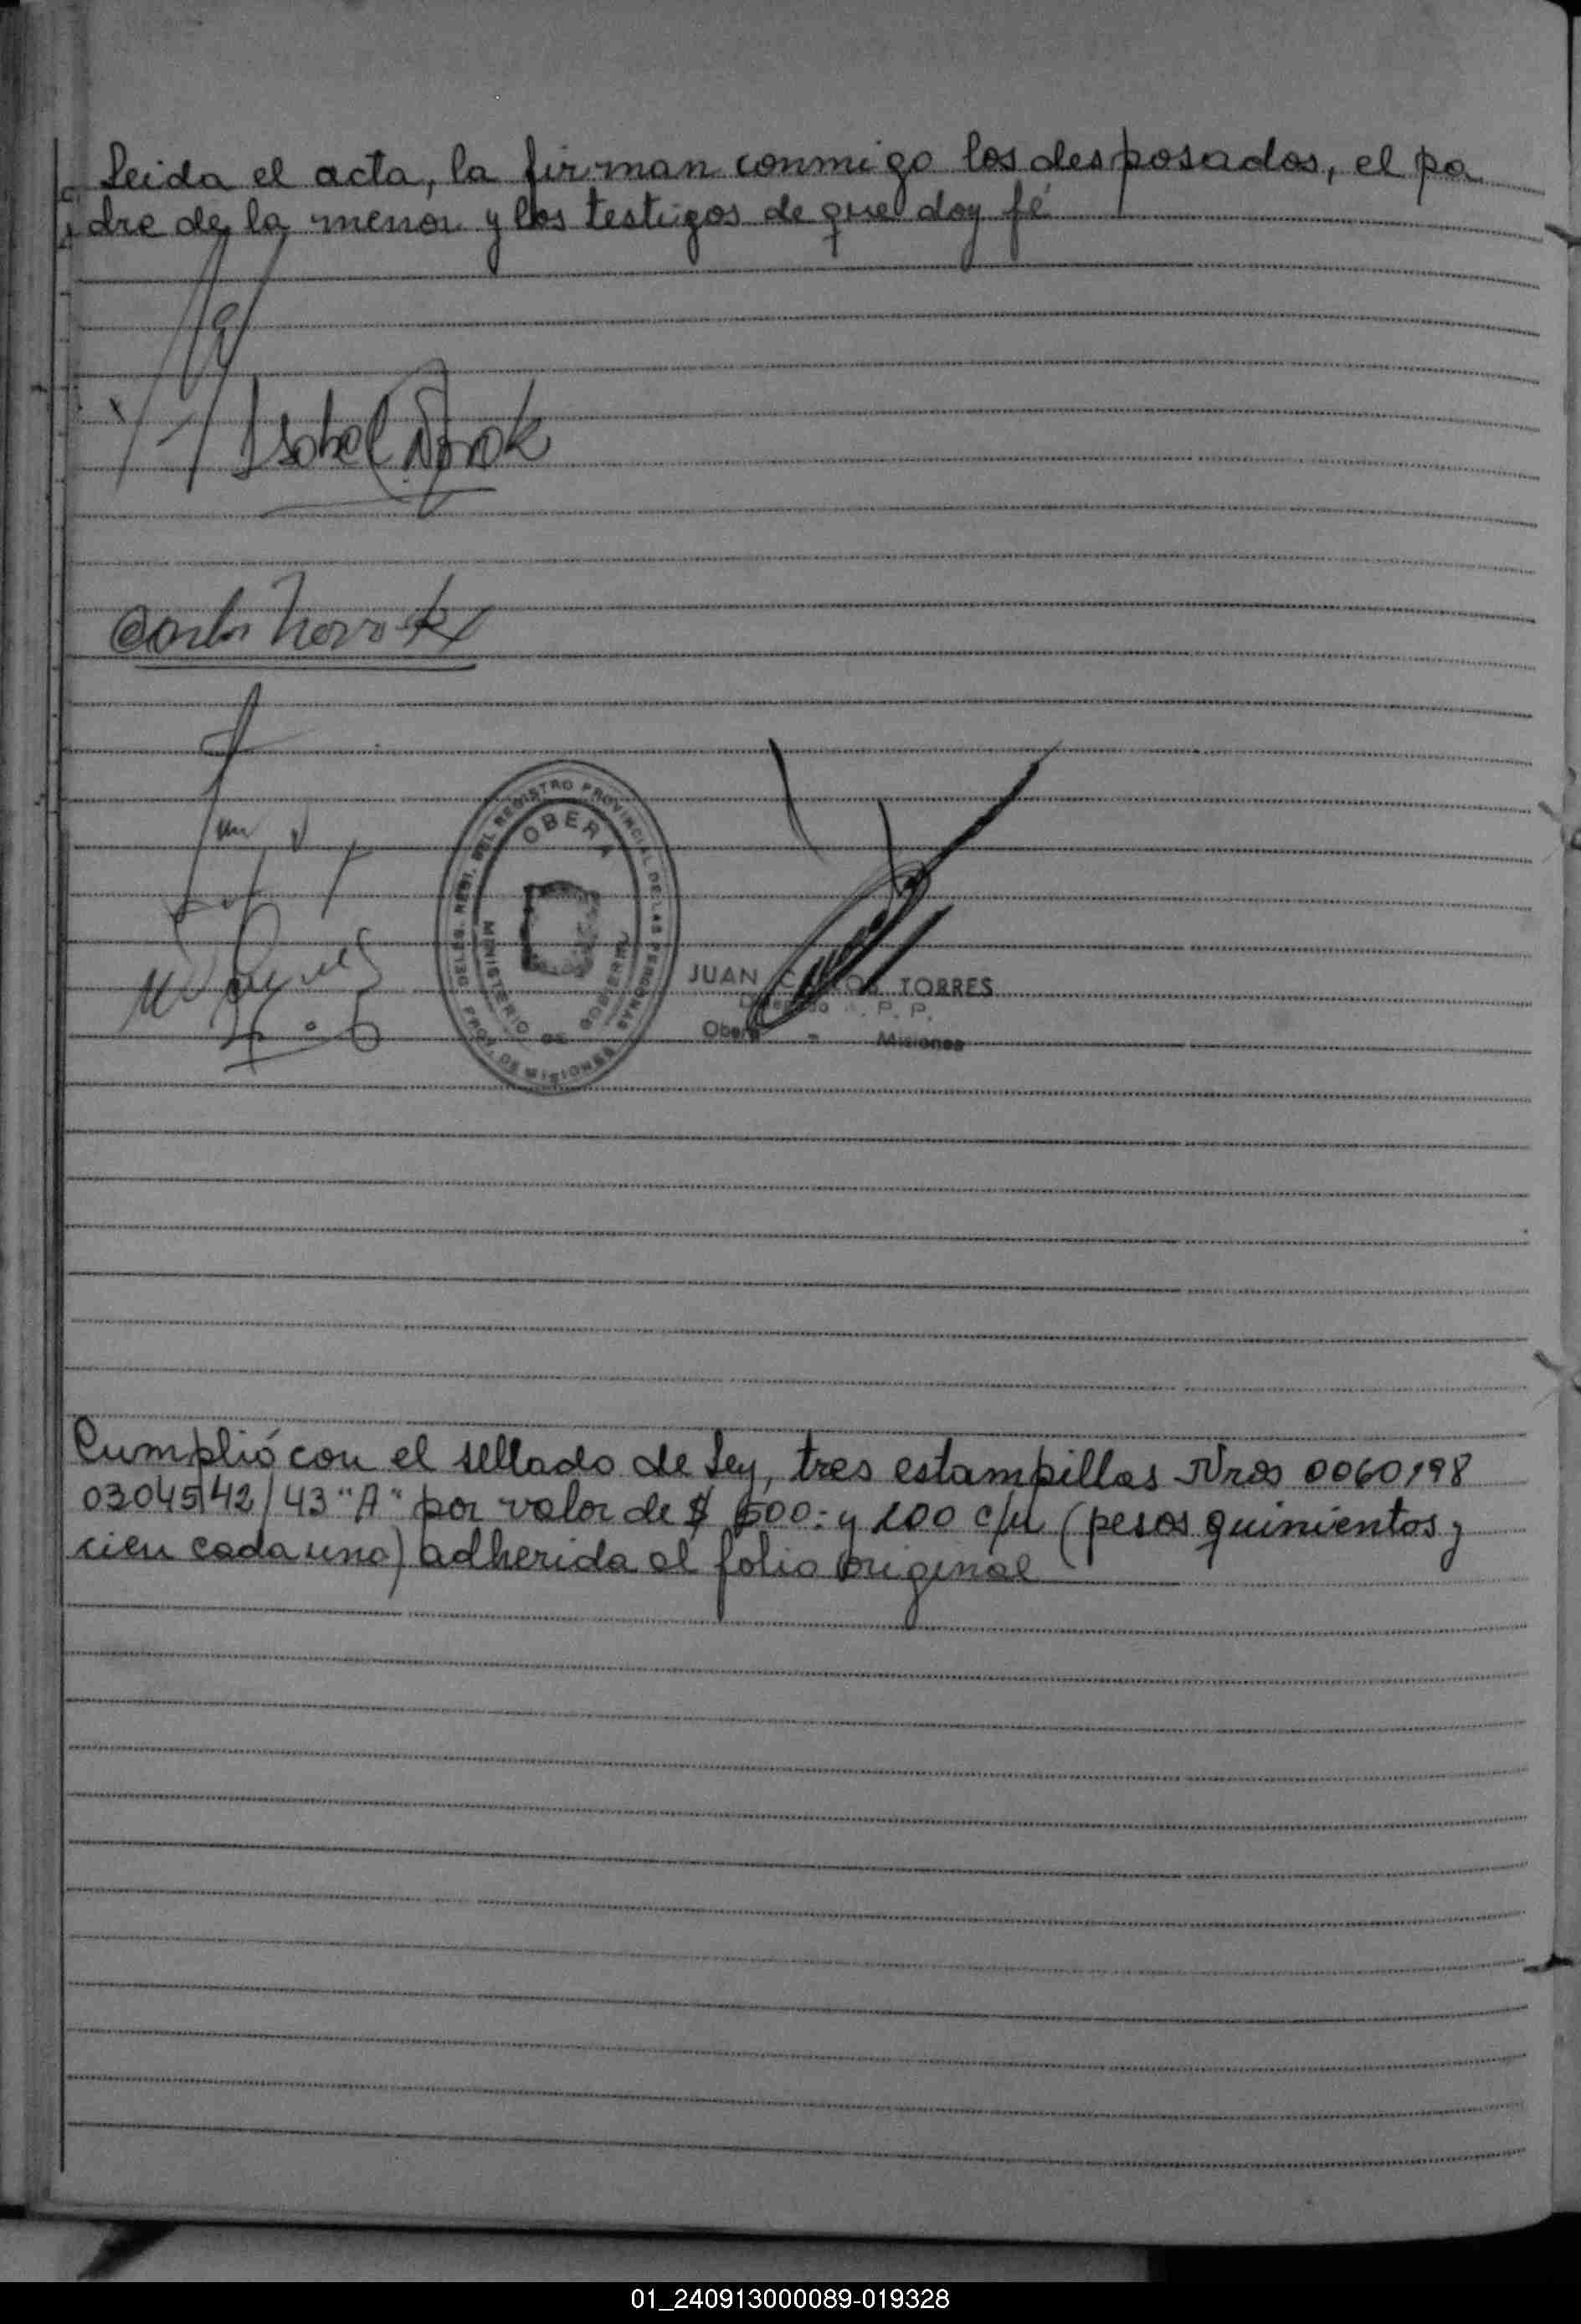 Leida el acta, la firman conmigo los desposados, el pa
dre de la menor y los testigos de que doy fé
Isabel Novak
Carlos Novak
DEL REGISTRO PROVINCIAL DE LAS PERSONAS
OBERA
MINISTERIO DE GOBIERNO
PROV. DE MISIONES
JUAN CARLOS TORRES
Delegado R. P. P.
Oberá - Misiones
Cumplió con el sellado de Ley, tres estampillas Nros 0060198
0304542/43 "A" por valor de $ 500.- y 100 c/u (pesos quinientos y
cien cada uno) adherida al folio original
01_240913000089-019328